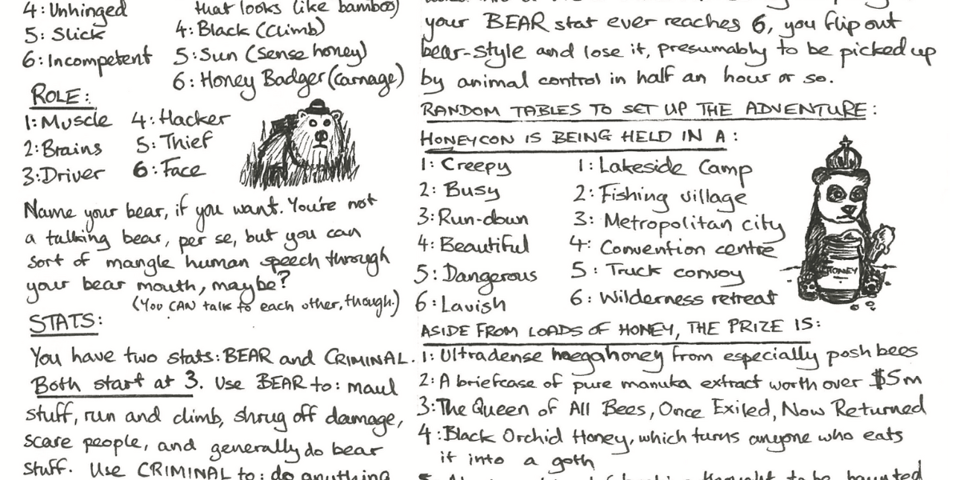 4: Unhinged
5: Slick
6: Incompetent
that looks like bamboo)
4: Black (climb)
5: Sun (sense honey)
6: Honey Badger (carnage)
ROLE:
1: Muscle
2: Brains
3: Driver
4: Hacker
5: Thief
6: Face
Name your bear, if you want. You're not
a talking bear, per se, but you can
sort of mangle human speech through
your bear mouth, maybe?
(You CAN talk to each other, though.)
STATS:
You have two stats: BEAR and CRIMINAL.
Both start at 3. Use BEAR to: maul
stuff, run and climb, shrug off damage,
scare people, and generally do bear
stuff. Use CRIMINAL to: do anything
your BEAR stat ever reaches 6, you flip out
bear-style and lose it, presumably to be picked up
by animal control in half an hour or so.
RANDOM TABLES TO SET UP THE ADVENTURE:
HONEYCON IS BEING HELD IN A:
1: Creepy
2: Busy
3: Run-down
4: Beautiful
5: Dangerous
6: Lavish
1: Lakeside Camp
2: Fishing village
3: Metropolitan city
4: Convention centre
5: Truck convoy
6: Wilderness retreat
HONEY
ASIDE FROM LOADS OF HONEY, THE PRIZE IS:
1: Ultradense megahoney from especially posh bees
2: A briefcase of pure manuka extract worth over $5m
3: The Queen of All Bees, Once Exiled, Now Returned
4: Black Orchid Honey, which turns anyone who eats
it into a goth
thought to be haunted